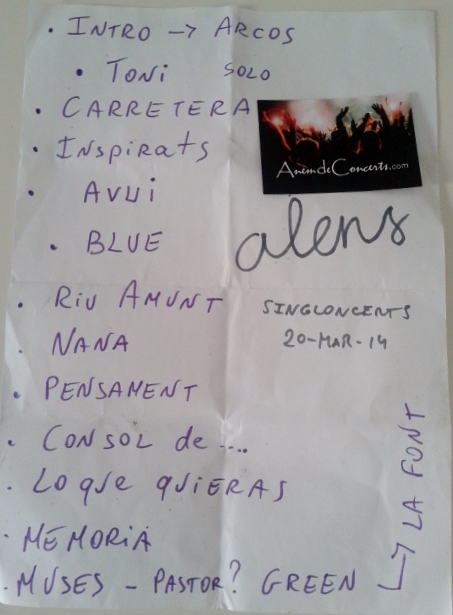 • INTRO → ARCOS
• TONI SOLO
• CARRETERA
• INSPIRATS
• AVUI
• BLUE
• RIU AMUNT
• NANA
• PENSAMENT
• CONSOL de ....
• LO QUE QUIERAS
• MEMORIA
• MUSES - PASTOR? GREEN
↳ LA FONT
AnemdeConcerts.com
alens
SINGLONCERTS
20-MAR-14